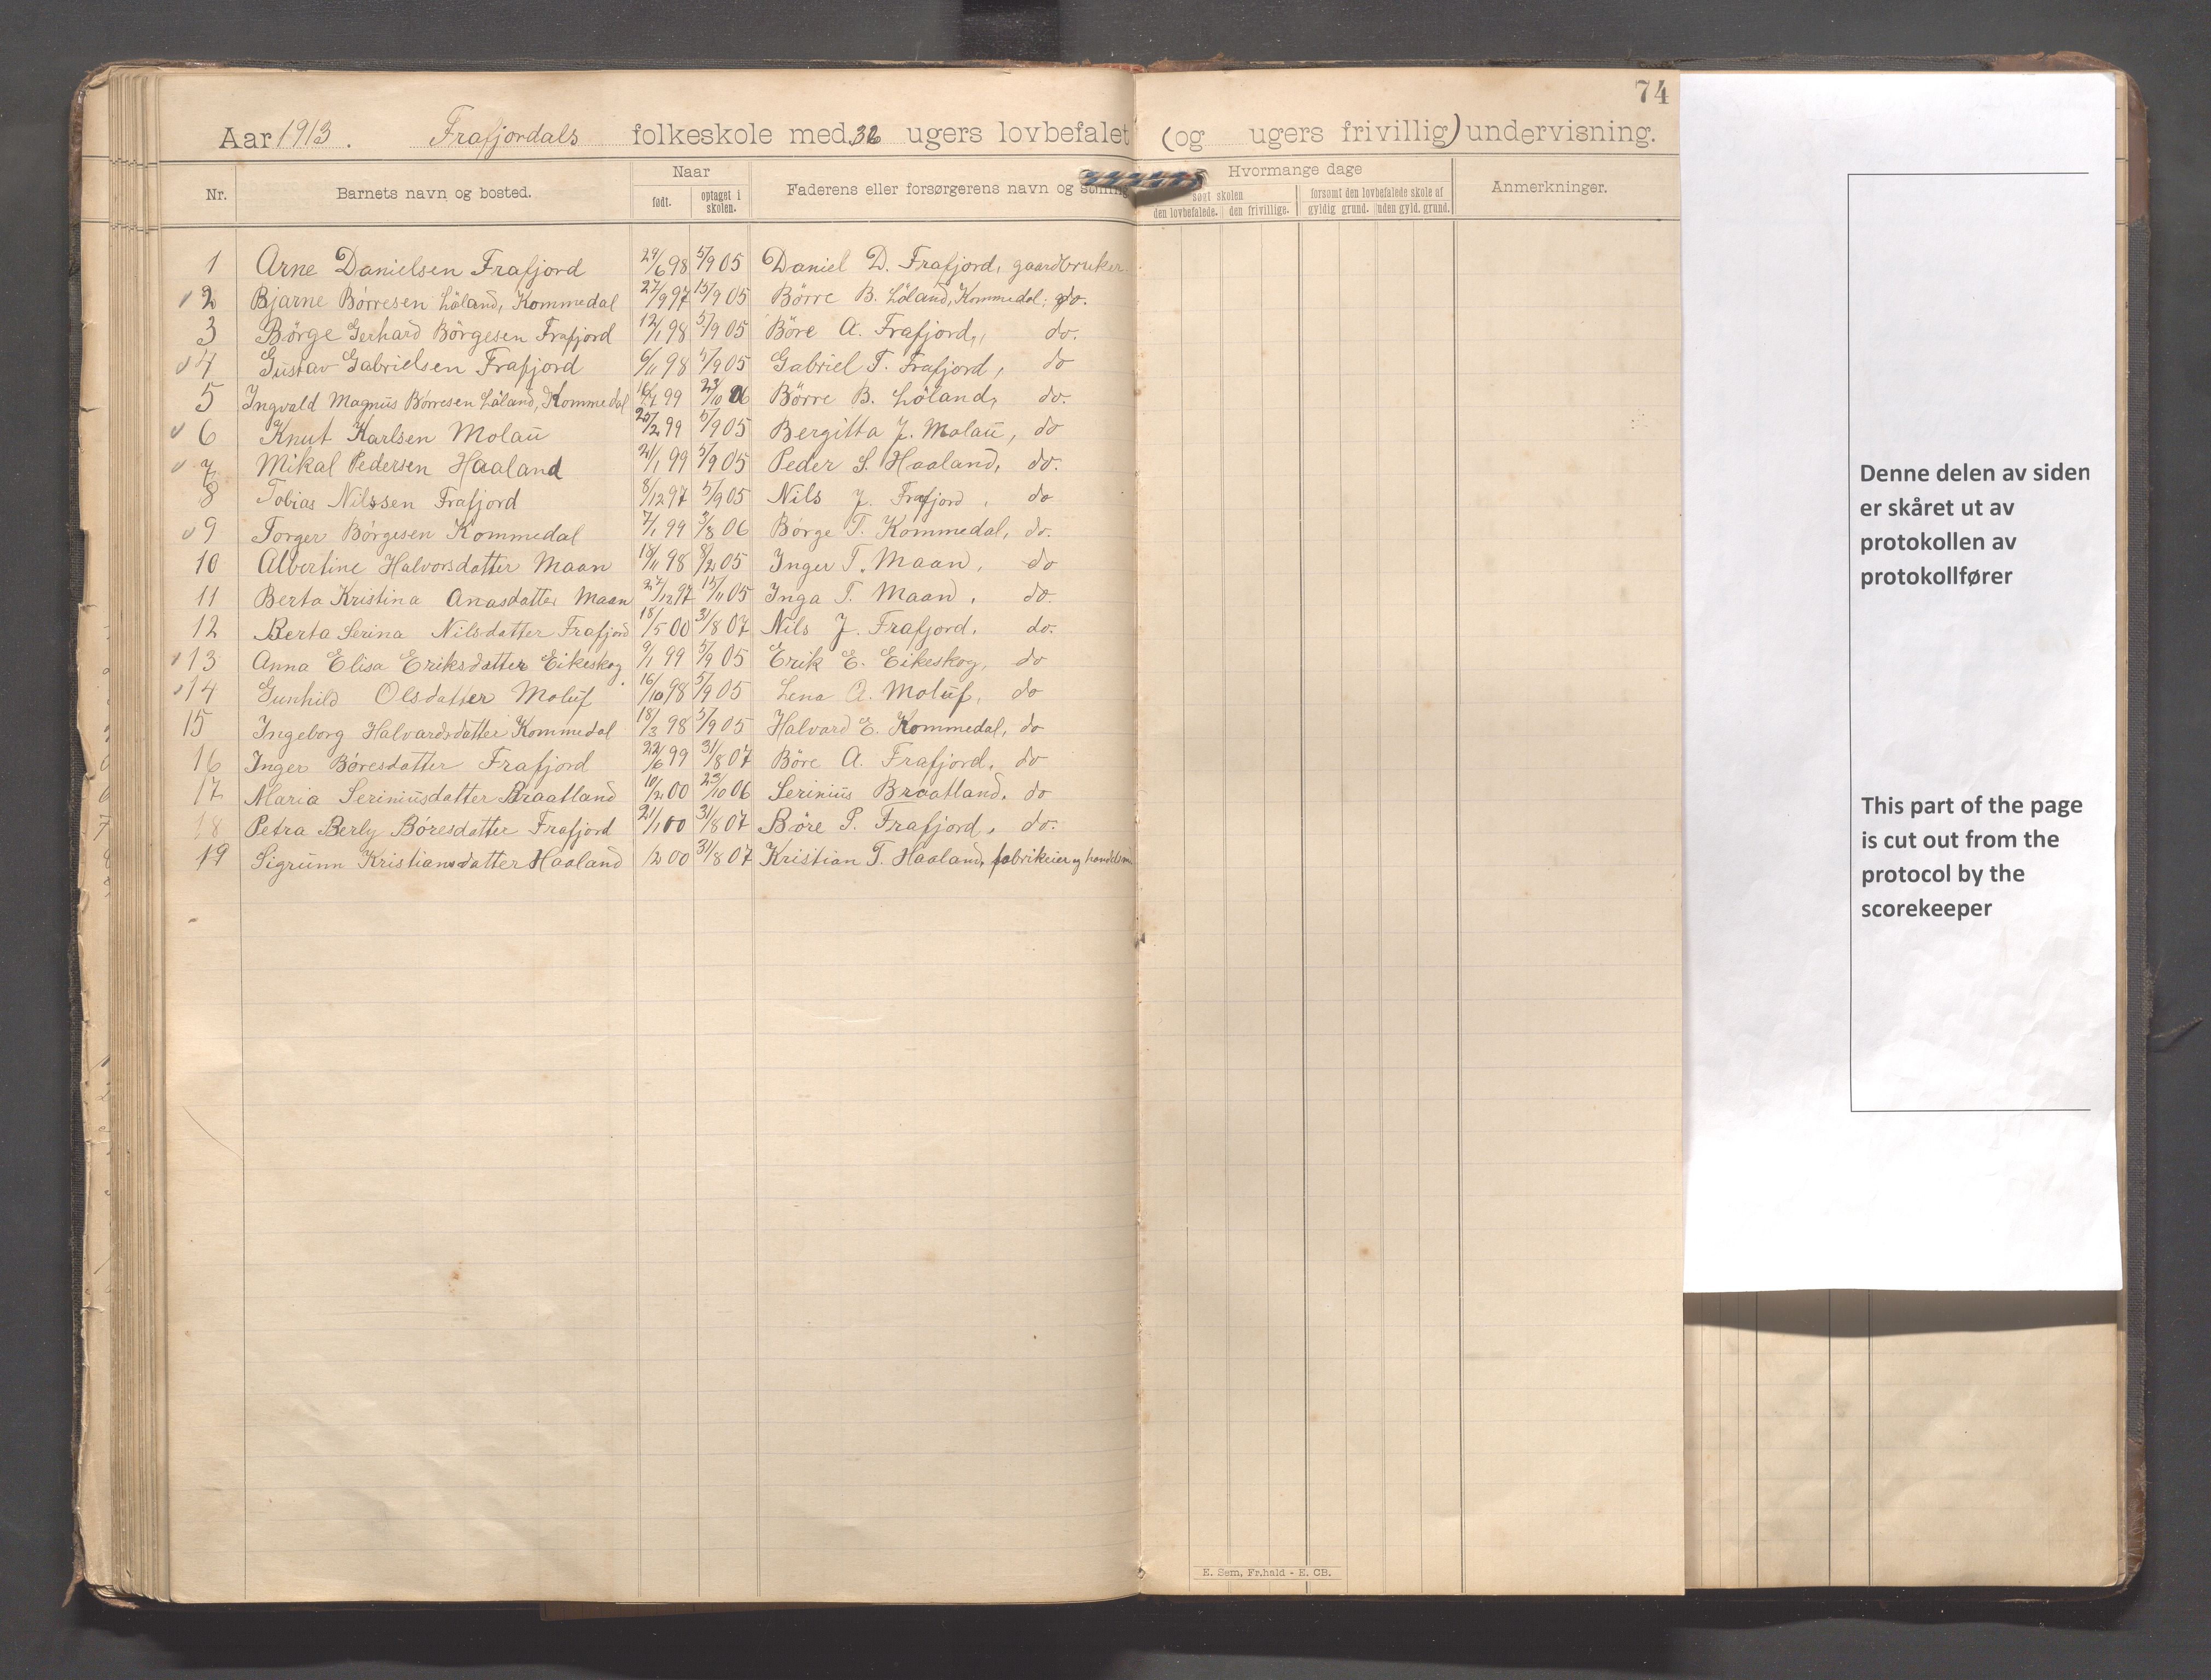 74
Aar 1913. Frafjordals folkeskole med 32 ugers lovbefalet (og ugers frivillig) undervisning.
Nr. Barnets navn og bosted. Naar Faderens eller forsørgerens navn og stilling Hvormange dage Anmerkninger.
født. optaget i skolen. søgt skolen forsømt den lovbefalede skole af
den lovbefalede. den frivillige. gyldig grund. uden gyld. grund.
1 Arne Danielsen Frafjord 29/6 98 5/9 05 Daniel D. Frafjord, gaardbruker
2 Bjarne Børresen Löland, Kommedal 27/9 97 15/9 05 Börre B. Löland, Kommedal; do.
3 Börge Gerhard Börgesen Frafjord 12/1 98 5/9 05 Böre A. Frafjord, do.
4 Gustav Gabrielsen Frafjord 6/11 98 5/9 05 Gabriel T. Frafjord, do
5 Ingvald Magnus Börresen Löland, Kommedal 99 23/10 06 Börre B. Löland, do.
6 Knut Karlsen Molaü 25/2 99 5/9 05 Bergitta J. Molaü, do
7 Mikal Pedersen Haaland 21/1 99 5/9 05 Peder S. Haaland, do.
8 Tobias Nilssen Frafjord 8/12 97 5/9 05 Nils J. Frafjord, do
9 Torger Børgesen Kommedal 7/1 99 3/8 06 Børge T. Kommedal, do.
10 Albertine Halvorsdatter Maan 18/11 98 8/2 05 Inger T. Maan, do
11 Berta Kristina Anasdatter Maan 27/12 97 15/11 05 Inga T. Maan, do.
12 Berta Serina Nilsdatter Frafjord 18/5 00 31/8 07 Nils J. Frafjord. do.
13 Anna Elisa Eriksdatter Eikeskog. 9/1 99 5/9 05 Erik E. Eikeskog, do
14 Gunhild Olsdatter Moluf 16/10 98 5/9 05 Lena A. Moluf, do
15 Ingeborg Halvardsdatter Kommedal 18/3 98 5/9 05 Halvard E. Kommedal, do
16 Inger Børesdatter Frafjord 22/6 99 31/8 07 Böre A. Frafjord. do
17 Maria Seriniüsdatter Braatland 10/2 00 23/10 06 Seriniüs Braatland. do
18 Petra Berly Böresdatter Frafjord 21/1 00 31/8 07 Böre P. Frafjord, do.
19 Sigrunn Kristiansdatter Haaland 1/2 00 31/8 07 Kristian T. Haaland, fabrikeier og handelsm
E. Sem, Fr.hald - E. CB.
Denne delen av siden
er skåret ut av
protokollen av
protokollfører
This part of the page
is cut out from the
protocol by the
scorekeeper